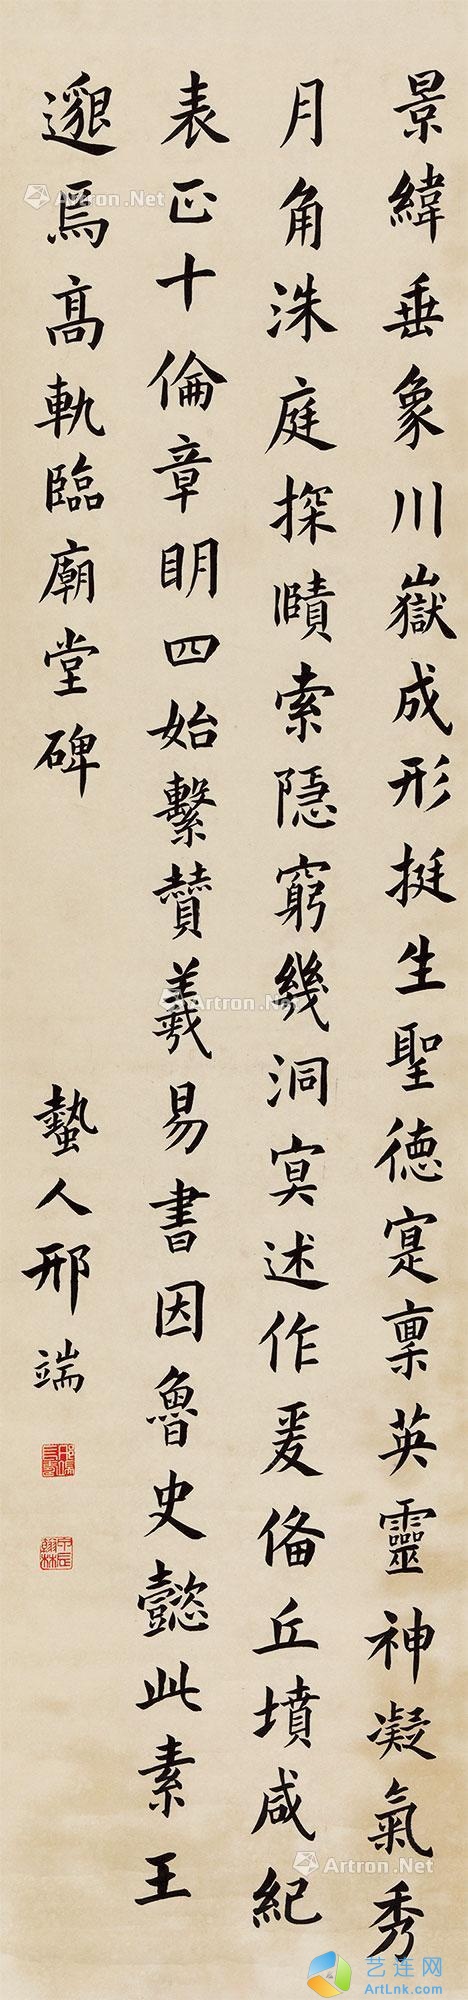 景緯垂象川嶽成形挺生聖德寔稟英靈神凝氣秀
月角洙庭探賾索隱窮幾洞冥述作爰偹丘墳咸紀
表正十倫章明四始繫贊羲易書因魯史懿此素王
邈焉高軌臨廟堂碑
蟄人邢端
邢端
甲辰翰林
Artron.Net
Artron.Net
Artron.Net
Artron.Net
Artron.Net
Artron.Net
艺连网
ArtLnk.com